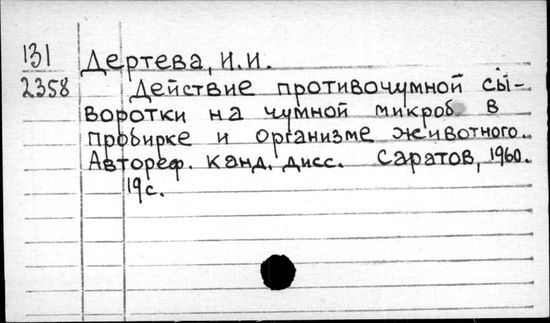 131 Дертева, И.И.
2358 Действие противочумной сы-
воротки на чумной микроб в
пробирке и организме животного.
Автореф. канд. дисс. Саратов, 1960.
19с.